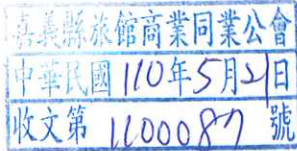 嘉義縣旅館商業同業公會
中華民國110年5月21日
收文第1100087號